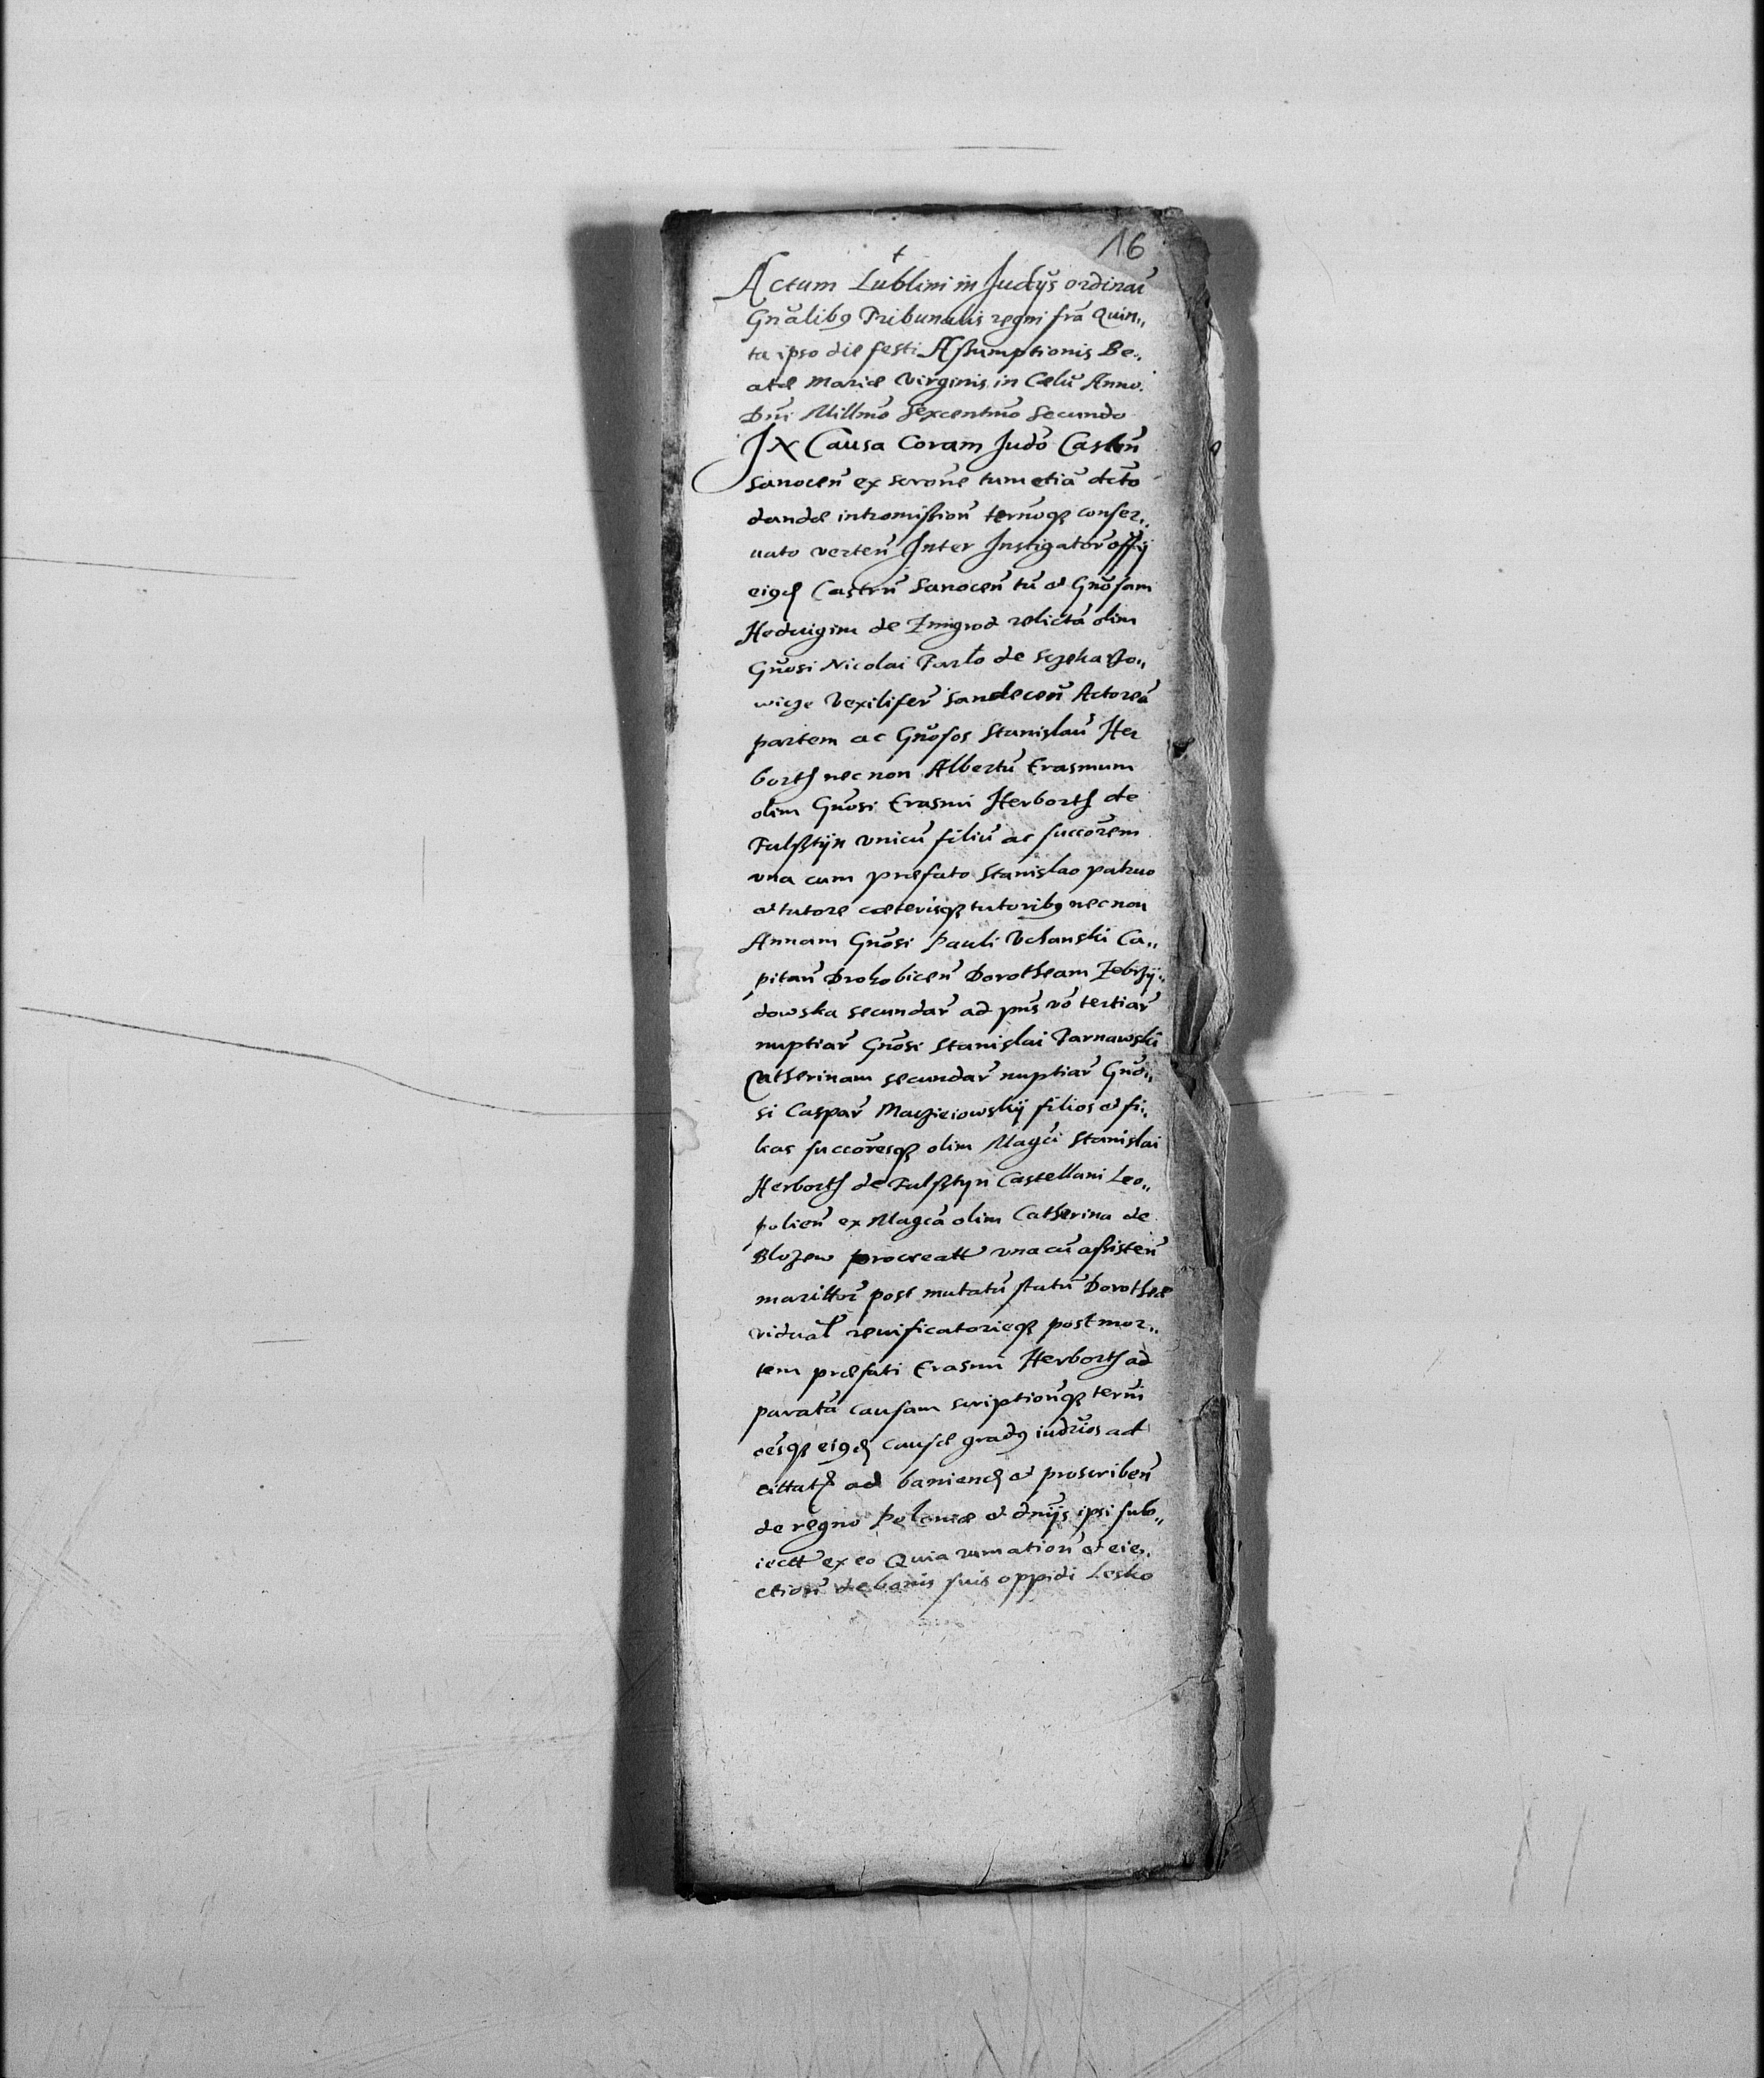 16
Actum Lublini in Judijs ordinar̃
Gñalibꝯ Tribunalis regni fr̃a Quin„
ta ipso die festi Aßumptionis Be„
atæ Mariæ Virginis in Cælũ Anno
Dñi Millm̃o Sexcentm̃o Secundo
IN Causa Coram Judõ Castrñ
Sanoceñ ex scrõne tum etiã dcto
dandæ intromißioñ termõqꝫ conser„
uato verteñ Inter Instigator̃ offij
eiꝯd Castrñ Sanoceñ tũ et Gñosam
Hedvigim de Zmigrod relictã olim
Gñosi Nicolai Tarło de Sczekarzo„
wicze Vexilifer̃ Sandeceñ Actoreã
partem ac Gñosos Stanislaũ Her
borth nec non Albertũ Erasmum
olim Gñosi Erasmi Herborth de
Fulßtijn vnicũ filiũ ac succorem
vna cum præfato Stanislao patruo
et tutore cæterisqꝫ tutoribꝯ nec non
Annam Gñosi Pauli Vchanski Ca„
pitañ Drohobiceñ Dorotheam Zebrzÿ„
dowska secundar̃ ad pñs võ tertiar̃
nuptiar̃ Gñosi Stanislai Tarnawski
Catherinam secundar̃ nuptiar̃ Gño„
si Caspar̃ Maczieiowskij filios et fi„
lias succoresqꝫ olim Magci Stanislai
Herborth de Fulßtyn Castellani Leo„
polieñ ex Magcã olim Catherina de
Blozew procreatt vna cũ aßisteñ
marittor̃ post mutatũ statũ Dorotheæ
vidual̃ reuificatorieqꝫ post mor„
tem præfati Erasmi Herborth ad
paratã causam scriptionẽqꝫ termi
oẽsqꝫ eiꝯd causæ gradꝯ iudr̃ios ad
cittatꝫ ad baniend et proscribeñ
de regno Poloniæ et dñijs ipsi sub„
iectt ex eo Quia rumationẽ et eie„
ctionẽ de bonis suis oppidi Lesko